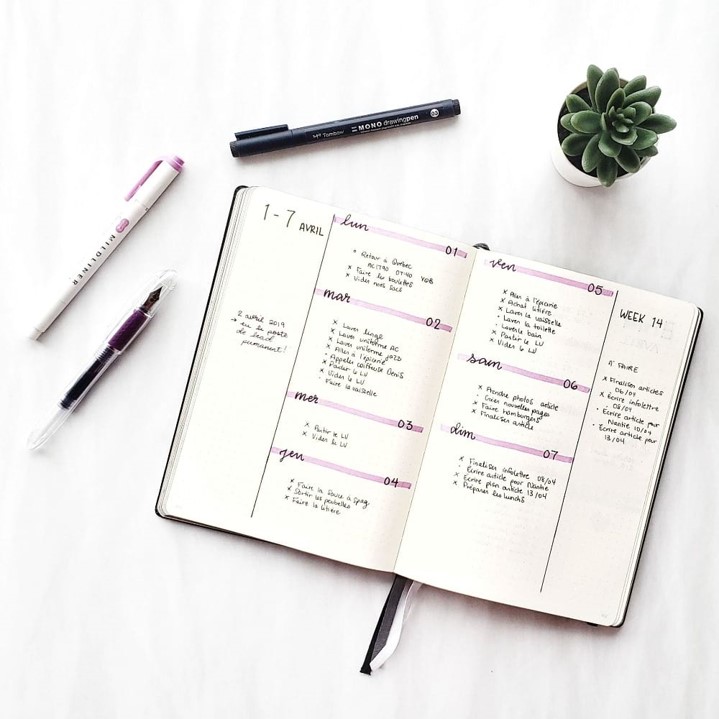 MILDLINER
Tombow MONO drawing pen 03
1-7 AVRIL
2 avril 2019
→ eu le poste
de lead
permanent!
lun
01
Retour à Québec
07:40 YQB
x Faire les boulettes
x Vider mon sac
mar
02
x Laver linge
x Laver uniforme AC
x Laver uniforme jazz
x Aller à l'épicerie
Appeler coiffeuse Denis
x Partir le LV
x Vider le LV
Faire la vaisselle
mer
03
x Partir le LV
x Vider le LV
jeu
04
x Faire la sauce à spag
x Sortir les poubelles
x Faire la litière
ven
05
x Aller à l'épicerie
x Achat litière
x Laver la vaisselle
x Laver la toilette
Laver le bain
x Partir le LV
x Vider le LV
sam
06
x Prendre photos article
Créer nouvelles pages
x Faire hamburgers
x Finaliser article
dim
07
x Finaliser infolettre 08/04
Écrire article pour Nantie
x Écrire plan article 13/04
x Préparer les lunchs
WEEK 14
À FAIRE
x Finaliser articles
06/04
x Écrire infolettre
08/04
Écrire article pour
Nantie 10/04
Écrire article pour
13/04